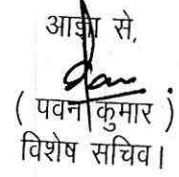 आज्ञा से,
( पवन कुमार )
विशेष सचिव।